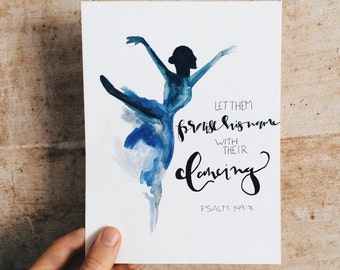 LET THEM
praise his name
WITH
THEIR
dancing
PSALM 149:3